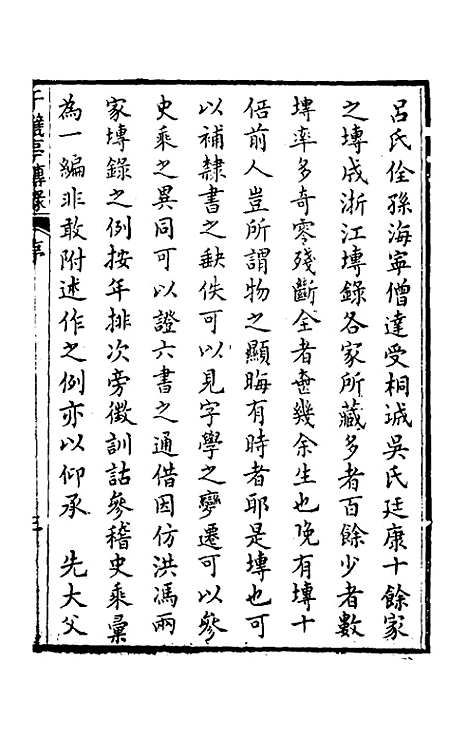 呂氏佺孫海寧僧達受桐城吳氏廷康十餘家
之塼成浙江塼錄各家所藏多者百餘少者數
塼率多奇零殘斷全者無幾余生也晚有塼十
倍前人豈所謂物之顯晦有時者耶是塼也可
以補隸書之缺佚可以見字學之變遷可以參
史乘之異同可以證六書之通借因仿洪馮兩
家塼錄之例按年排次旁徵訓詁參稽史乘彙
為一編非敢附述作之例亦以仰承　先大父
千甓亭塼錄　序　三